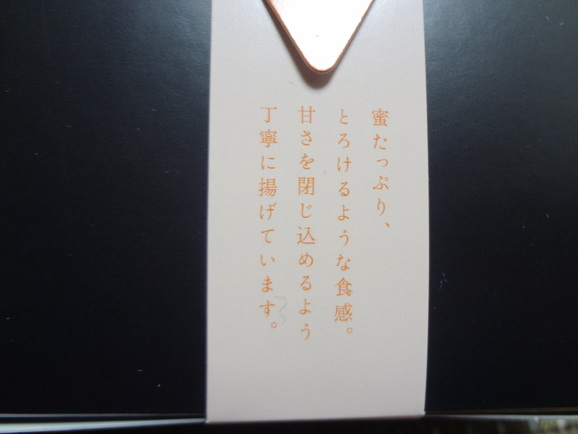 蜜たっぷり、
とろけるような食感。
甘さを閉じ込めるよう
丁寧に揚げています。